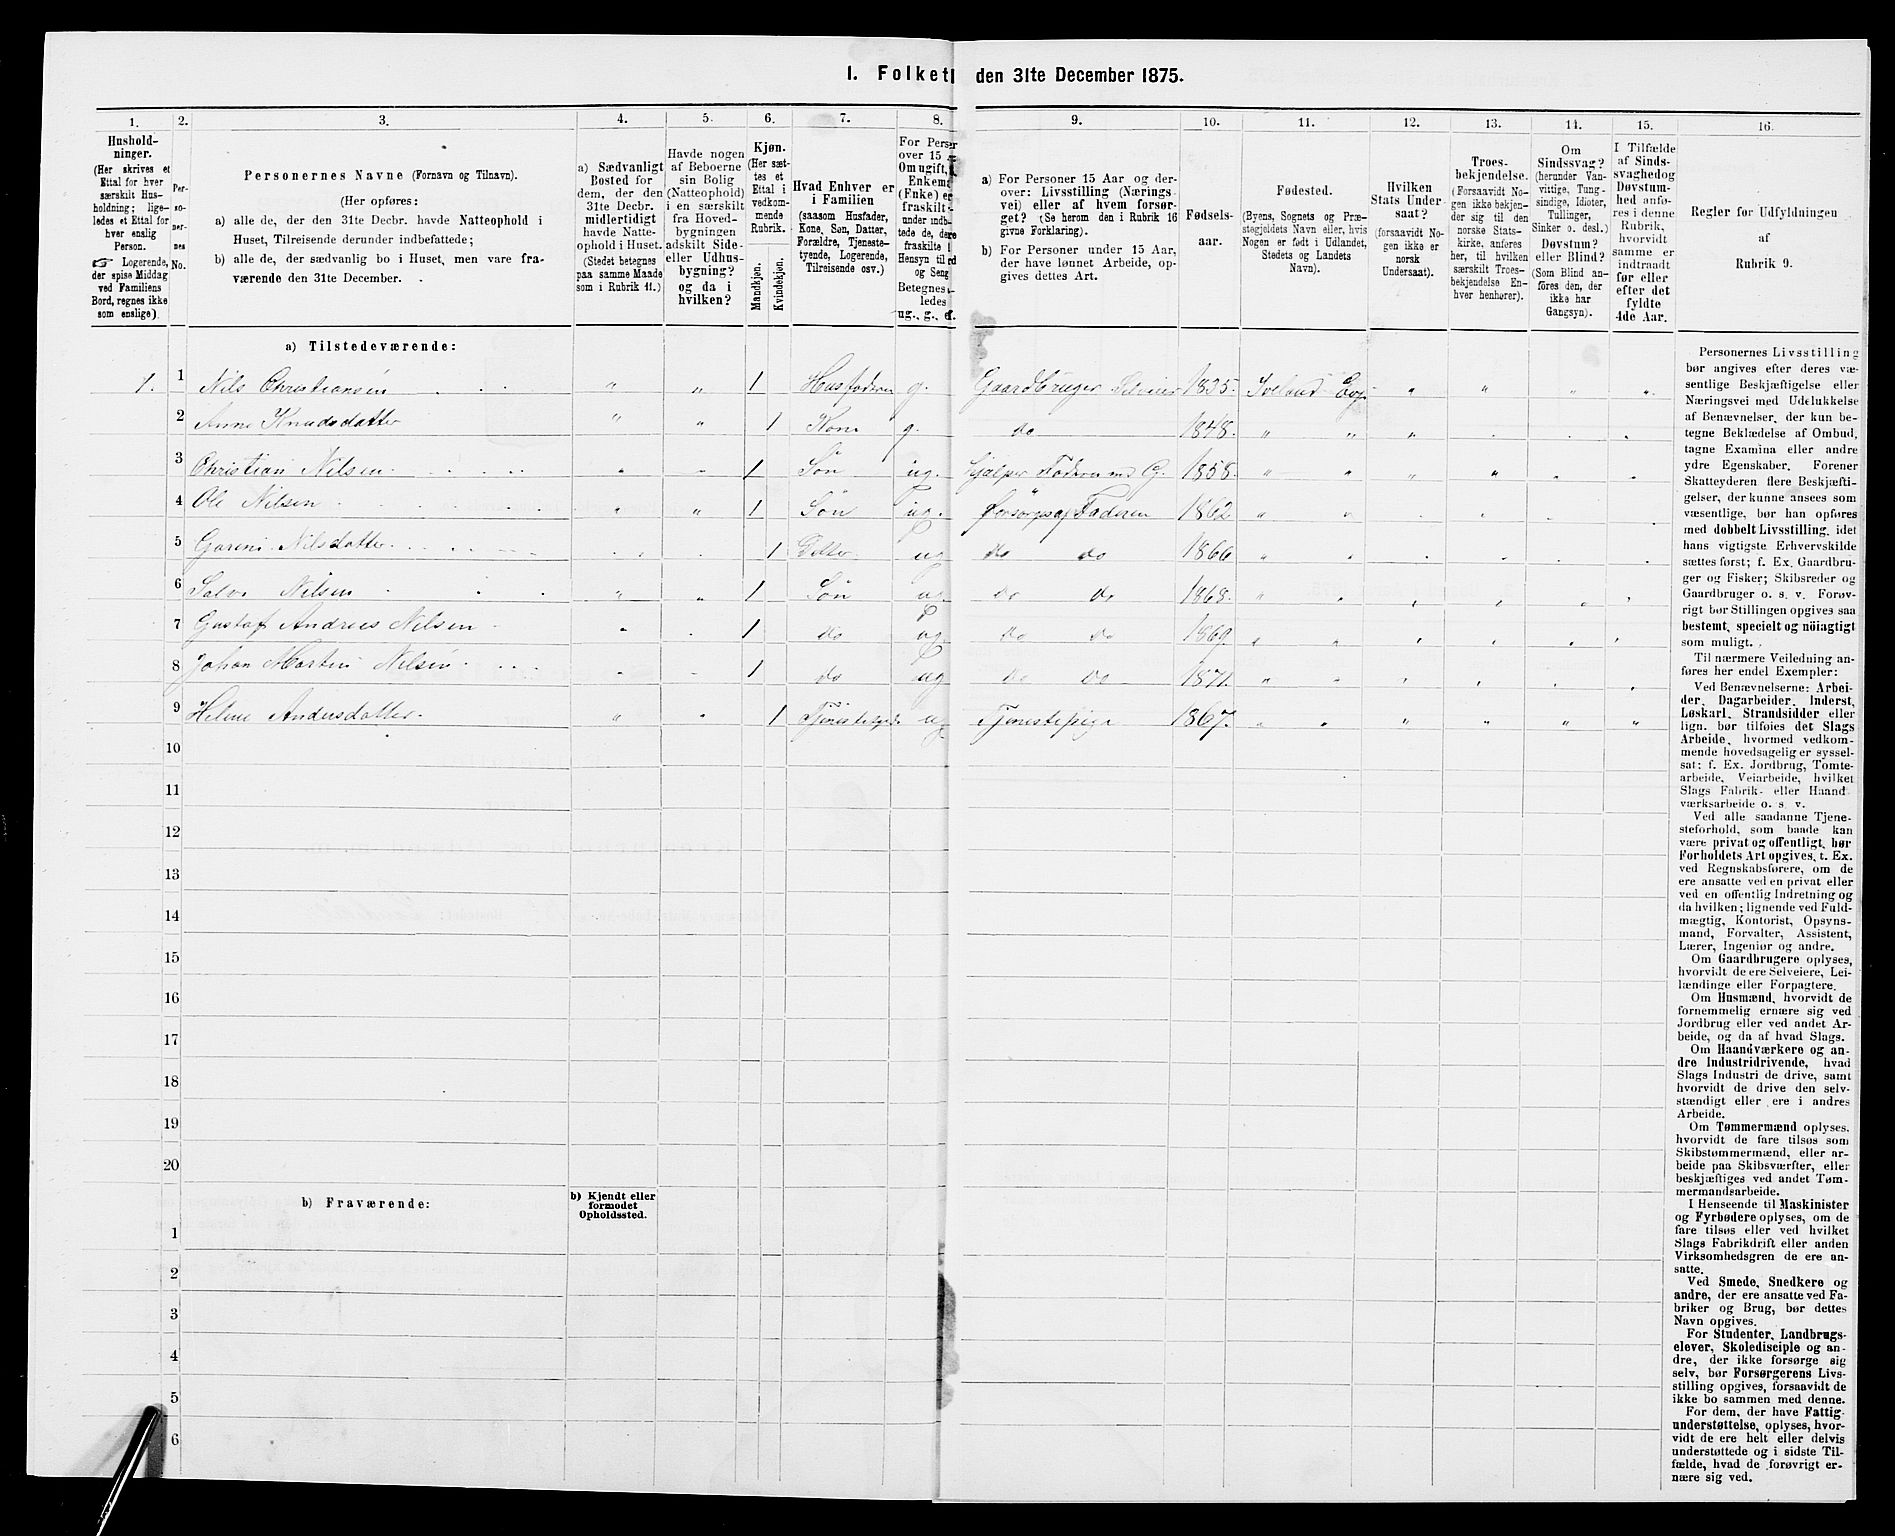 1. Folket
den 31te December 1875.
1.
2.
3.
4.
5.
6.
7.
8.
9.
10.
11.
12.
13.
14.
15.
16.
Hushold-
ninger.
(Her skrives et
Ettal for hver
særskilt Hus-
holdning; lige-
ledes et Ettal for
hver enslig
Person.
☞ Logerende,
der spise Middag
ved Familiens
Bord, regnes ikke
som enslige).
Per-
so-
ner-
nes
No.
Personernes Navne (Fornavn og Tilnavn).
(Her opføres:
a) alle de, der den 31te Decbr. havde Natteophold i
Huset, Tilreisende derunder indbefattede;
b) alle de, der sædvanlig bo i Huset, men vare fra-
værende den 31te December.
a) Sædvanligt
Bosted for
dem, der den
31te Decbr.
midlertidigt
havde Natte-
ophold i Huset.
(Stedet betegnes
paa samme Maade
som i Rubrik 11.)
Havde nogen
af Beboerne
sin Bolig
(Natteophold)
i en særskilt
fra Hoved-
bygningen
adskilt Side-
eller Udhus-
bygning?
og da i
hvilken?
Kjøn.
(Her sæt-
tes et
Ettal i
vedkom-
mende
Rubrik.
Mandkjøn.
Kvindekjøn.
Hvad Enhver er
i Familien
(saasom Husfader,
Kone, Søn, Datter,
Forældre, Tjeneste-
tyende, Logerende,
Tilreisende osv.)
For Perser
over 15
Om ugift,
Enkema
(Enke) er
fraskilt
under indb-
tede de, der
fraskilte i
Hensyn til
og Seng
Betegnes
ledes
ug., g., e.
a) For Personer 15 Aar og der-
over: Livsstilling (Nærings-
vei) eller af hvem forsør-
get? (Se herom den i Rubrik 16
givne Forklaring).
b) For Personer under 15 Aar,
der have lønnet Arbeide, op-
gives dettes Art.
Fødsels-
aar.
Fødested.
(Byens, Sognets og Præ-
stegjeldets Navn eller, hvis
Nogen er født i Udlandet,
Stedets og Landets
Navn).
Hvilken
Stats Under-
saat?
(forsaavidt No-
gen ikke er
norsk
Undersaat).
Troes-
bekjendelse.
(Forsaavidt No-
gen ikke bekjen-
der sig til den
norske Stats-
kirke, anføres
her, til hvilken
særskilt Troes-
bekjendelse En-
hver henhører).
Om
Sindssvag?
(herunder Van-
vittige, Tung-
sindige, Idioter,
Tullinger,
Sinker o. desl.)
Døvstum?
eller Blind?
(Som Blind an-
føres den, der
ikke har
Gangsyn).
I Tilfælde
af Sinds-
svaghed og
Døvstum-
hed anfø-
res i denne
Rubrik,
hvorvidt
samme er
indtraadt
før eller
efter det
fyldte
4de Aar.
Regler for Udfyldningen
af
Rubrik 9.
a) Tilstedeværende:
1. 1 Nils Christiansen " " 1 Husfaderen g. Gaardbruger Selveier 1835. Iveland Evje " " " "
2 Anne Knudsdatter " " 1 Kone g. do 1848. " " "
3 Christian Nilsen 1 Søn ug. hjælper Faderen md G. 1858. " " " "
4 Ole Nilsen " " 1 Søn ug. Forsörges af Faderen 1862 "
5 Nilsdatter 1 Datter ug do do 1866 "
6 Salve Nilsen " " 1 Søn ug do do 1868. "
7 Gustaf Andreas Nilsen 1 do ug do do 1869. " "
8 Johan Martin Nilsen 1 do ug do do 1871. " "
9 Helene Andersdatter " " 1 ug Tjenestepige 1867. " " " " " "
10
11
12
13
14
15
16
17
18
19
20
b) Fraværende:
b) Kjendt eller
formodet
Opholdssted.
1
2
3
4
5
6
Personernes Livsstilling
bør angives efter deres væ-
sentlige Beskjæftigelse eller
Næringsvei med Udelukkelse
af Benævnelser, der kun be-
tegne Beklædelse af Ombud,
tagne Examina eller andre
ydre Egenskaber. Forener
Skatteyderen flere Beskjæfti-
gelser, der kunne ansees som
væsentlige, bør han opføres
med dobbelt Livsstilling, idet
hans vigtigste Erhvervskilde
sættes først; f. Ex. Gaardbru-
ger og Fisker; Skibsreder og
Gaardbruger o. s. v. Forøv-
rigt bør Stillingen opgives saa
bestemt, specielt og nöiagtigt
som muligt.
Til nærmere Veiledning an-
føres her endel Exempler:
Ved Benævnelserne: Arbei-
der, Dagarbeider, Inderst,
Løskarl, Strandsidder eller
lign. bør tilføies det Slags
Arbeide, hvormed vedkom-
mende hovedsagelig er syssel-
sat; f. Ex. Jordbrug, Tomte-
arbeide, Veiarbeide, hvilket
Slags Fabrik- eller Haand-
værksarbeide o. s. v.
Ved alle saadanne Tjene-
steforhold, som baade kan
være privat og offentligt, bør
Forholdets Art opgives, t. Ex.
ved Regnskabsførere, om de
ere ansatte ved en privat eller
ved en offentlig Indretning og
da hvilken; lignende ved Fuld-
mægtig, Kontorist, Opsyns-
mand, Forvalter, Assistent,
Lærer, Ingeniør og andre.
Om Gaardbrugere oplyses,
hvorvidt de ere Selveiere, Lei-
lændinge eller Forpagtere.
Om Husmænd, hvorvidt de
fornemmelig ernære sig ved
Jordbrug eller ved andet Ar-
beide, og da af hvad Slags.
Om Haandværkere og an-
dre Industridrivende, hvad
Slags Industri de drive, samt
hvorvidt de drive den selv-
stændigt eller ere i andres
Arbeide.
Om Tømmermænd oplyses,
hvorvidt de fare tilsøs som
Skibstømmermænd, eller ar-
beide paa Skibsværfter, eller
beskjæftiges ved andet Tøm-
mermandsarbeide.
I Henseende til Maskinister
og Fyrbødere oplyses, om de
fare tilsøs eller ved hvilket
Slags Fabrikdrift eller anden
Virksomhedsgren de ere an-
satte.
Ved Smede, Snedkere og
andre, der ere ansatte ved Fa-
briker og Brug, bør dettes
Navn opgives.
For Studenter, Landbrugs-
elever, Skoledisciple og an-
dre, der ikke forsørge sig
selv, bør Forsørgerens Livs-
stilling opgives, forsaavidt de
ikke bo sammen med denne.
For dem, der have Fattig-
understøttelse, oplyses, hvor-
vidt de ere helt eller delvis
understøttede og i sidste Til-
fælde, hvad de forøvrigt er-
nære sig ved.